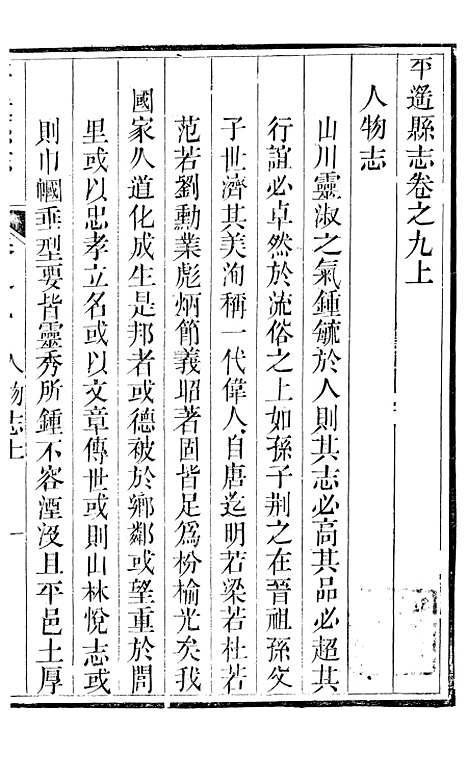 平遙縣志卷之九上
人物志
山川靈淑之氣鍾毓於人則其志必高其品必超其
行誼必卓然於流俗之上如孫子荆之在晉祖孫父
子世濟其美洵稱一代偉人自唐迄明若梁若杜若
范若劉勳業彪炳節義昭著固皆足爲枌榆光矣我
國家久道化成生是邦者或德被於鄉鄰或望重於閭
里或以忠孝立名或以文章傳世或則山林悅志或
則巾幗垂型要皆靈秀所鍾不容湮没且平邑土厚
人物志上
一